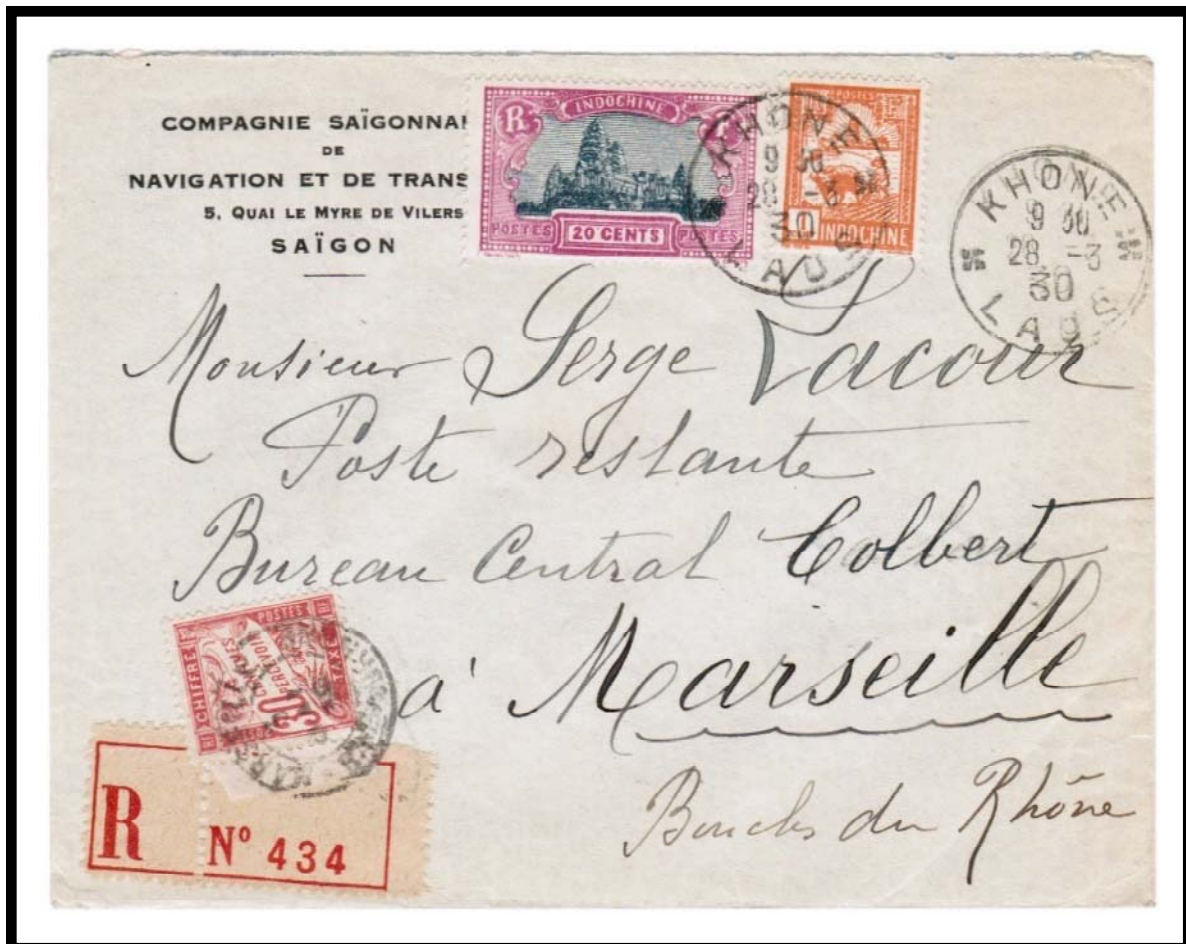 COMPAGNIE SAÏGONNAI
DE
NAVIGATION ET DE TRANS
5, QUAI LE MYRE DE VILERS
SAÏGON
RF
INDOCHINE
POSTES 20 CENTS POSTES
POSTES
INDOCHINE
KHONE
9 30
28 -3
30
LAOS
KHONE
9 30
28 -3
30
LAOS
Monsieur Serge Lacour
Poste restante
Bureau Central Colbert
à Marseille
Bouches du Rhône
RF POSTES RF
CHIFFRE TAXE
CENTIMES
À PERCEVOIR
30
R
Nº 434